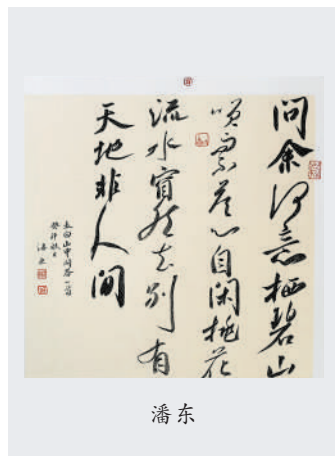 问余何意栖碧山
咲而不答心自闲桃花
流水窅然去别有
天地非人间
太白山中问答一首
潘东
潘东